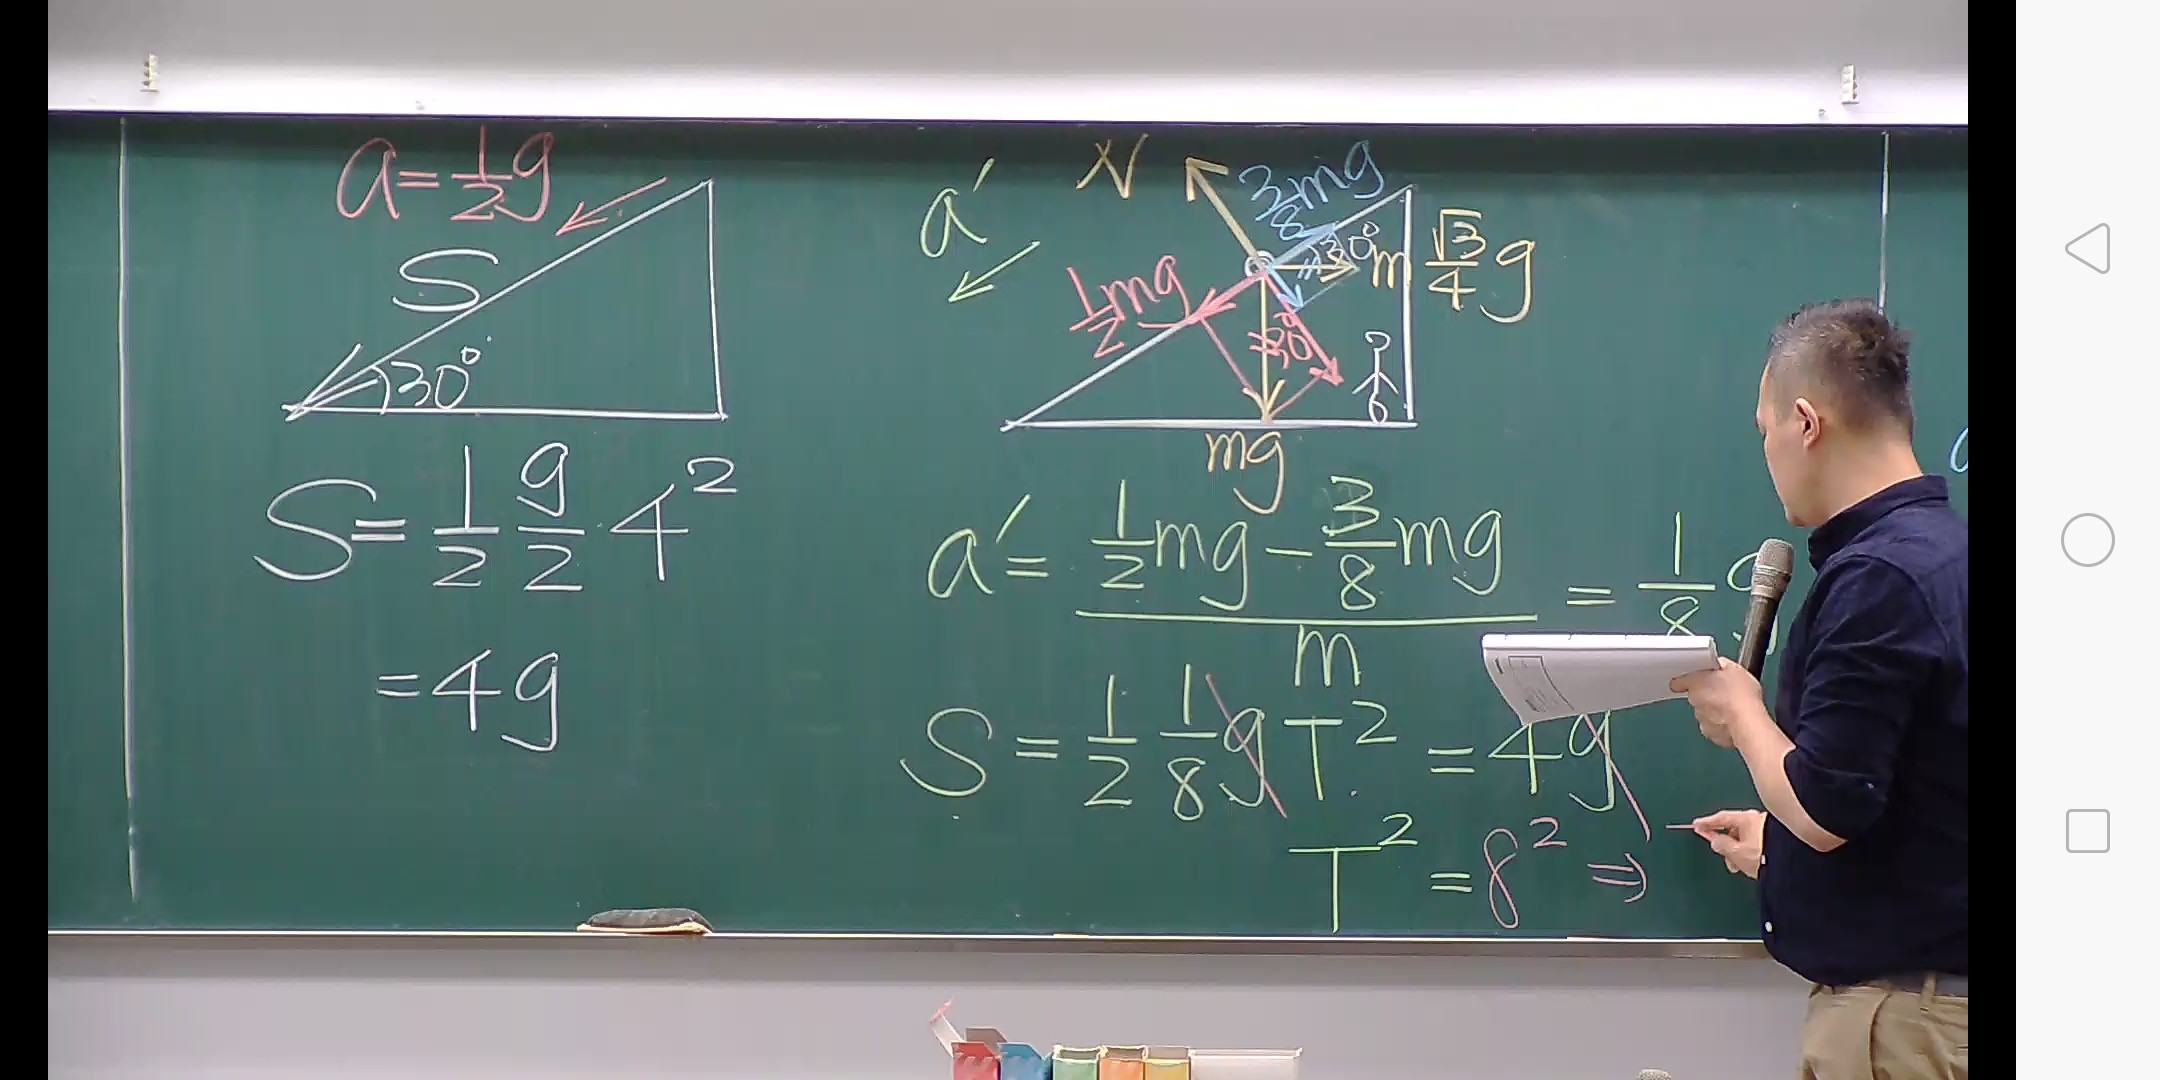 a = 1/2 g
S
30°
S = 1/2 g/2 4²
= 4g
a'
N
3/8 mg
30°
m √3/4 g
1/2 mg
30°
mg
a' = (1/2 mg − 3/8 mg) / m = 1/8
S = 1/2 1/8 g T² = 4g
T² = 8² ⇒